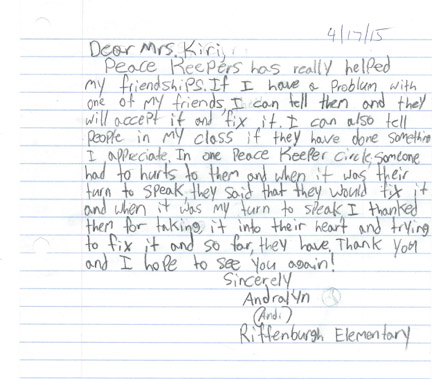 4/17/15
Dear Mrs. Kiri,
Peace Keepers has really helped
my friendships. If I have a problem with
one of my friends I can tell them and they
will accept it and fix it. I can also tell
people in my class if they have done something
I appreciate. In one Peace Keeper circle, someone
had to hurts to them and when it was their
turn to speak, they said that they would fix it
and when it was my turn to speak I thanked
them for taking it into their heart and trying
to fix it and so far, they have. Thank you
and I hope to see you again!
Sincerely
Andralyn
(Andi)
Riffenburgh Elementary